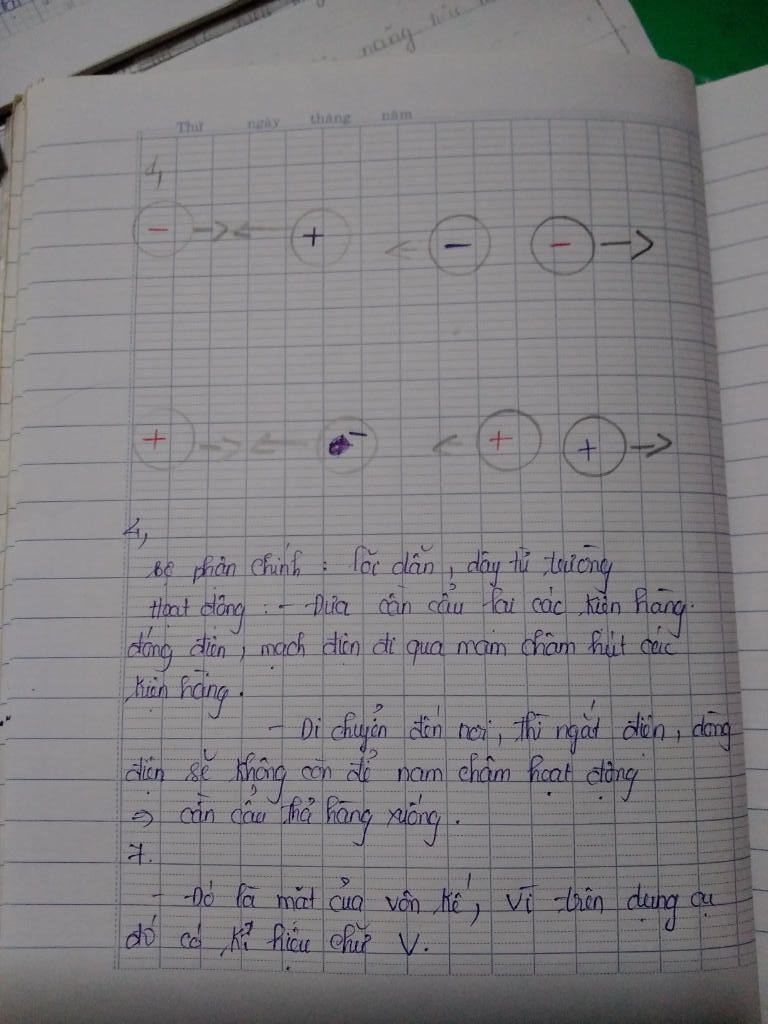 năng
Thứ ngày tháng năm
1,
− + − −
+ − + +
4,
Bộ phận chính : lõi dẫn, dây từ trường
Hoạt động : - Đưa cần cẩu lại các kiện hàng.
đóng điện, mạch điện đi qua nam châm hút các
kiện hàng.
- Di chuyển đến nơi, thì ngắt điện, dòng
điện sẽ không còn để nam châm hoạt động
⇒ cần cẩu thả hàng xuống.
7.
- Đó là mặt của vôn kế, vì trên dụng cụ
đó có kí hiệu chữ V.